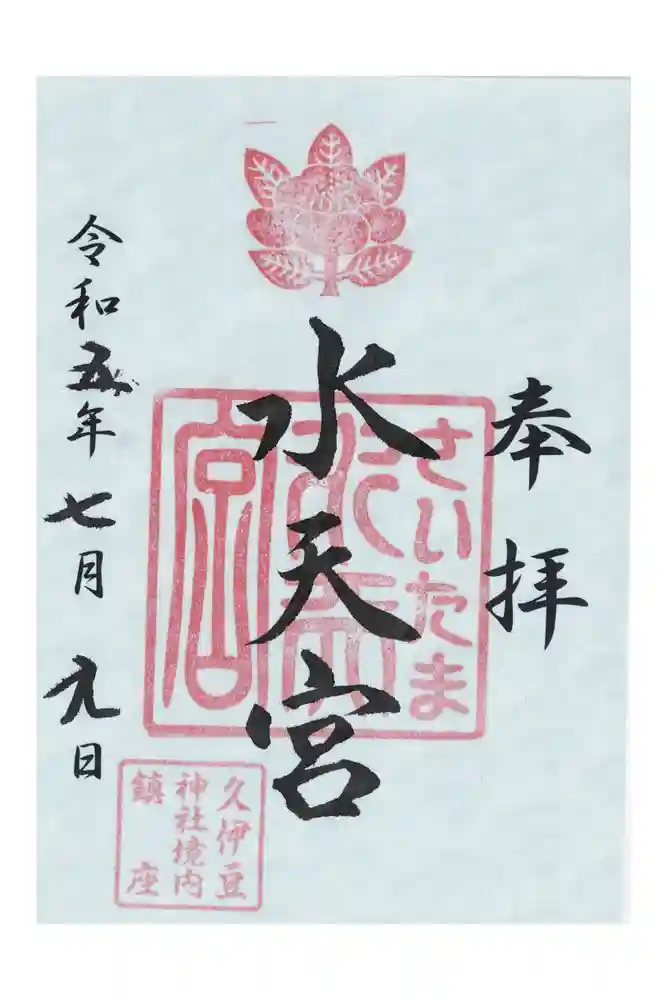 奉拝
さいたま
水天
宮
水天宮
久伊豆
神社境内
鎮座
令和五年七月九日